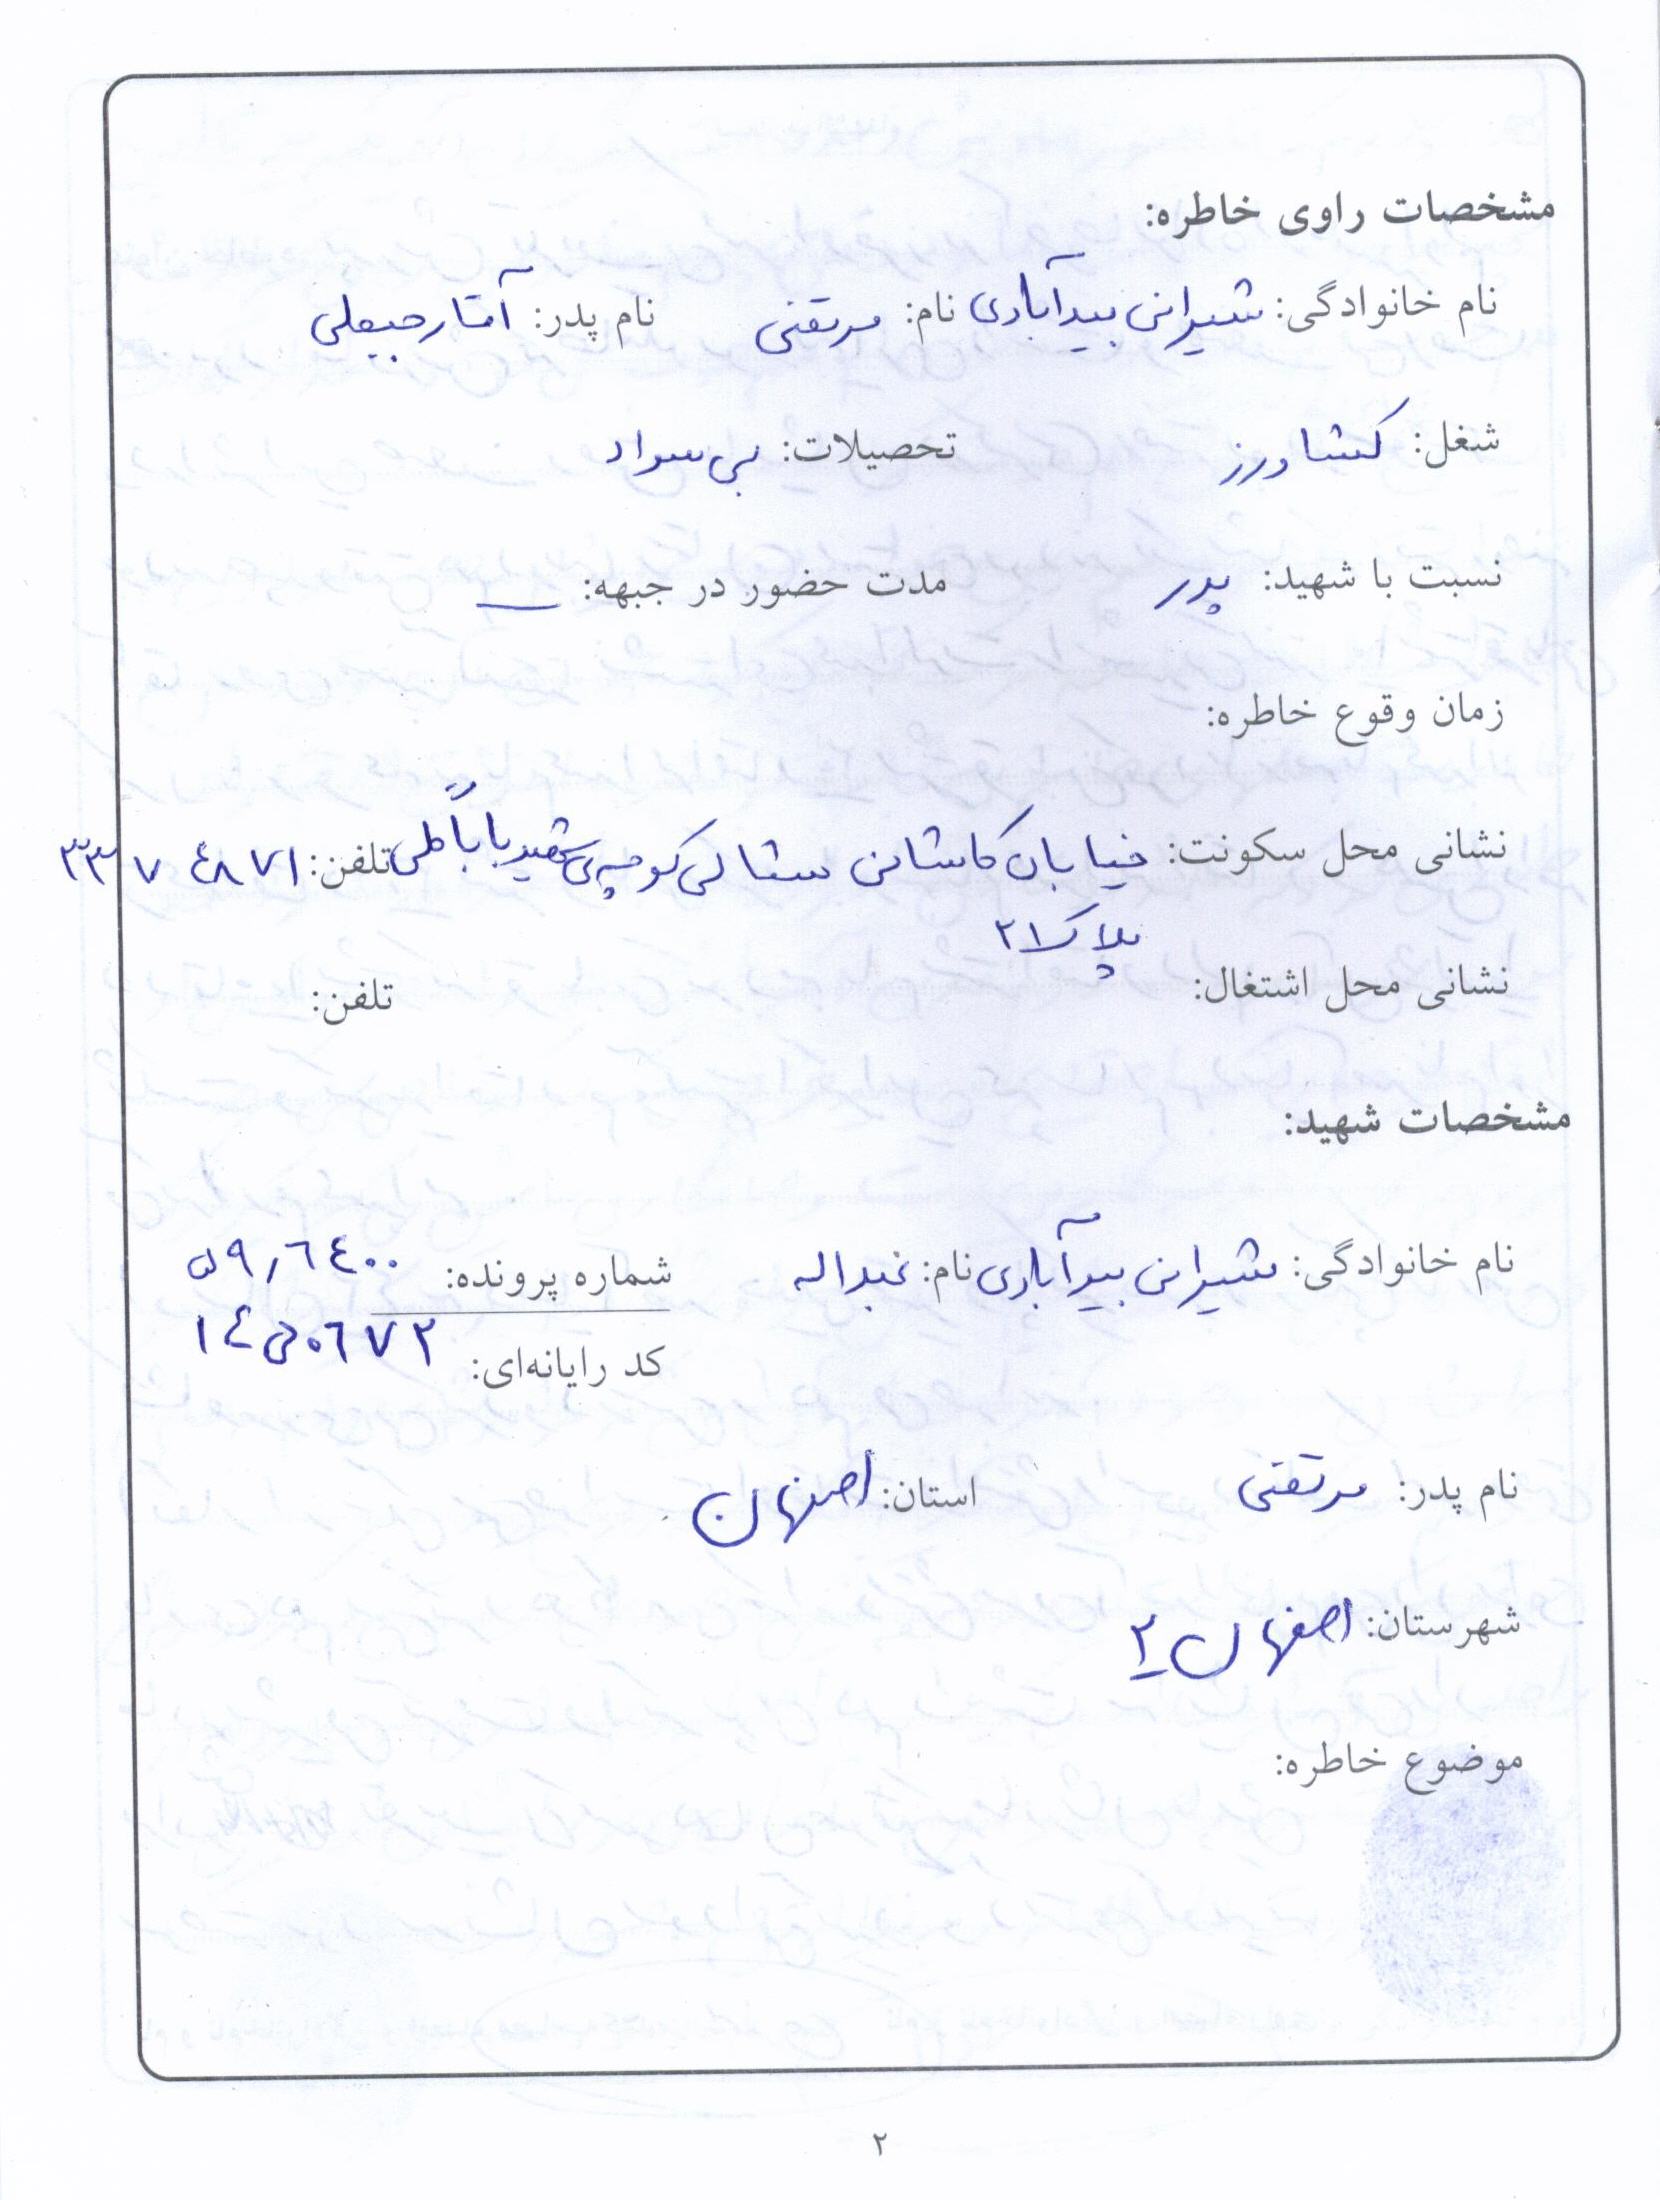 مشخصات راوی خاطره:
نام خانوادگی: شیرانی بیدآبادی نام: مرتضی نام پدر: آقارجبعلی
شغل: کشاورز تحصیلات: بی سواد
نسبت با شهید: پدر مدت حضور در جبهه: ـــ
زمان وقوع خاطره:
نشانی محل سکونت: خیابان کاشانی شمالی کوچه‌ی شهید تلفن: ۳۳۷۴۸۷۱
پلاک ۲۱
نشانی محل اشتغال: تلفن:
مشخصات شهید:
نام خانوادگی: شیرانی بیدآبادی نام: عبداله شماره پرونده: ۵۹٫۶۴۰۰
کد رایانه‌ای: ۱۴۵۰۶۷۲
نام پدر: مرتضی استان: اصفهان
شهرستان: اصفهان ۲
موضوع خاطره:
۲